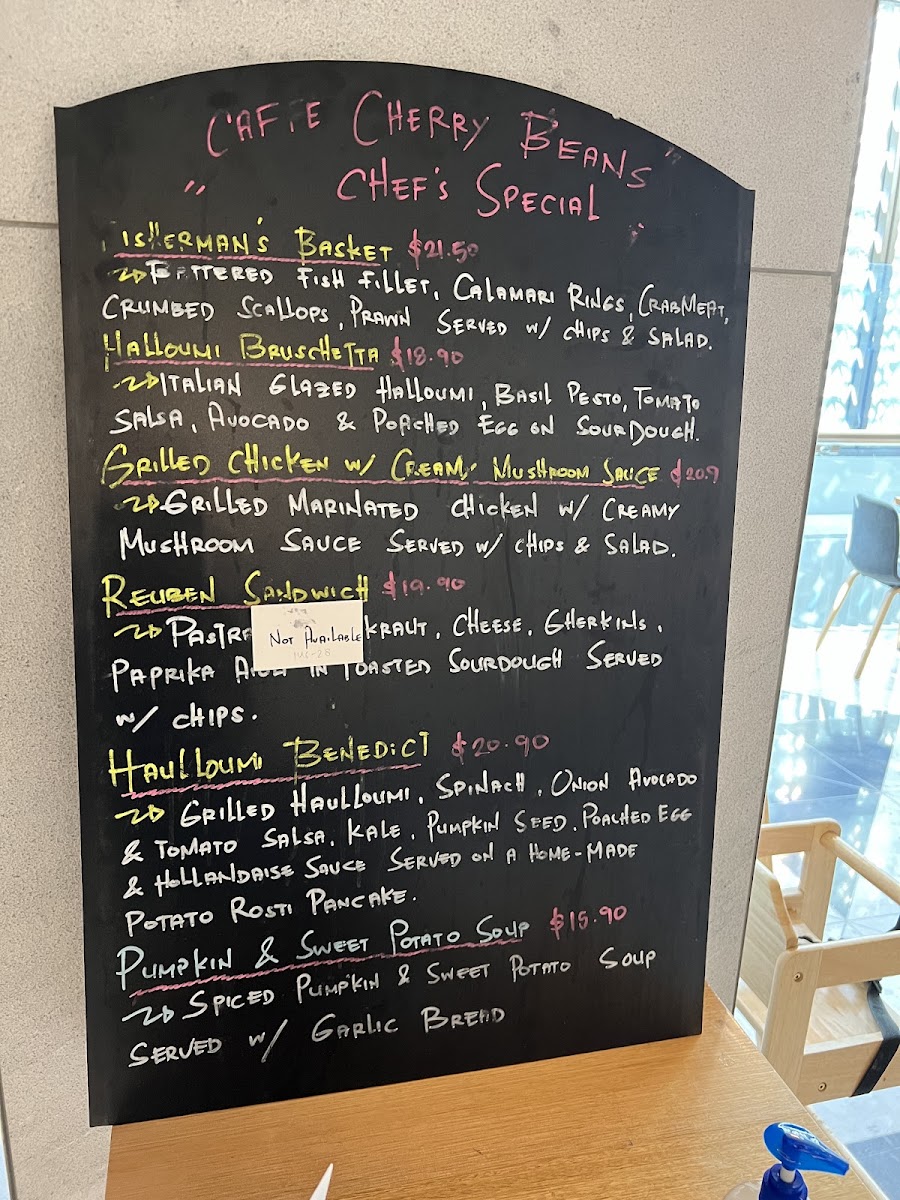 CAFFE CHERRY BEANS
" CHEF'S SPECIAL "
FISHERMAN'S BASKET $21.50
BATTERED FISH FILLET, CALAMARI RINGS, CRABMEAT,
CRUMBED SCALLOPS, PRAWN SERVED W/ CHIPS & SALAD.
HALLOUMI BRUSCHETTA $18.90
ITALIAN GLAZED HALLOUMI, BASIL PESTO, TOMATO
SALSA, AVOCADO & POACHED EGG ON SOURDOUGH.
GRILLED CHICKEN W/ CREAMY MUSHROOM SAUCE $20.9
GRILLED MARINATED CHICKEN W/ CREAMY
MUSHROOM SAUCE SERVED W/ CHIPS & SALAD.
REUBEN SANDWICH $19.90
PASTRA KRAUT, CHEESE, GHERKINS,
NOT AVAILABLE
PAPRIKA AIOLI IN TOASTED SOURDOUGH SERVED
W/ CHIPS.
HAULLOUMI BENEDICT $20.90
GRILLED HAULLOUMI, SPINACH, ONION AVOCADO
& TOMATO SALSA, KALE, PUMPKIN SEED, POACHED EGG
& HOLLANDAISE SAUCE SERVED ON A HOME-MADE
POTATO ROSTI PANCAKE.
PUMPKIN & SWEET POTATO SOUP $15.90
SPICED PUMPKIN & SWEET POTATO SOUP
SERVED W/ GARLIC BREAD